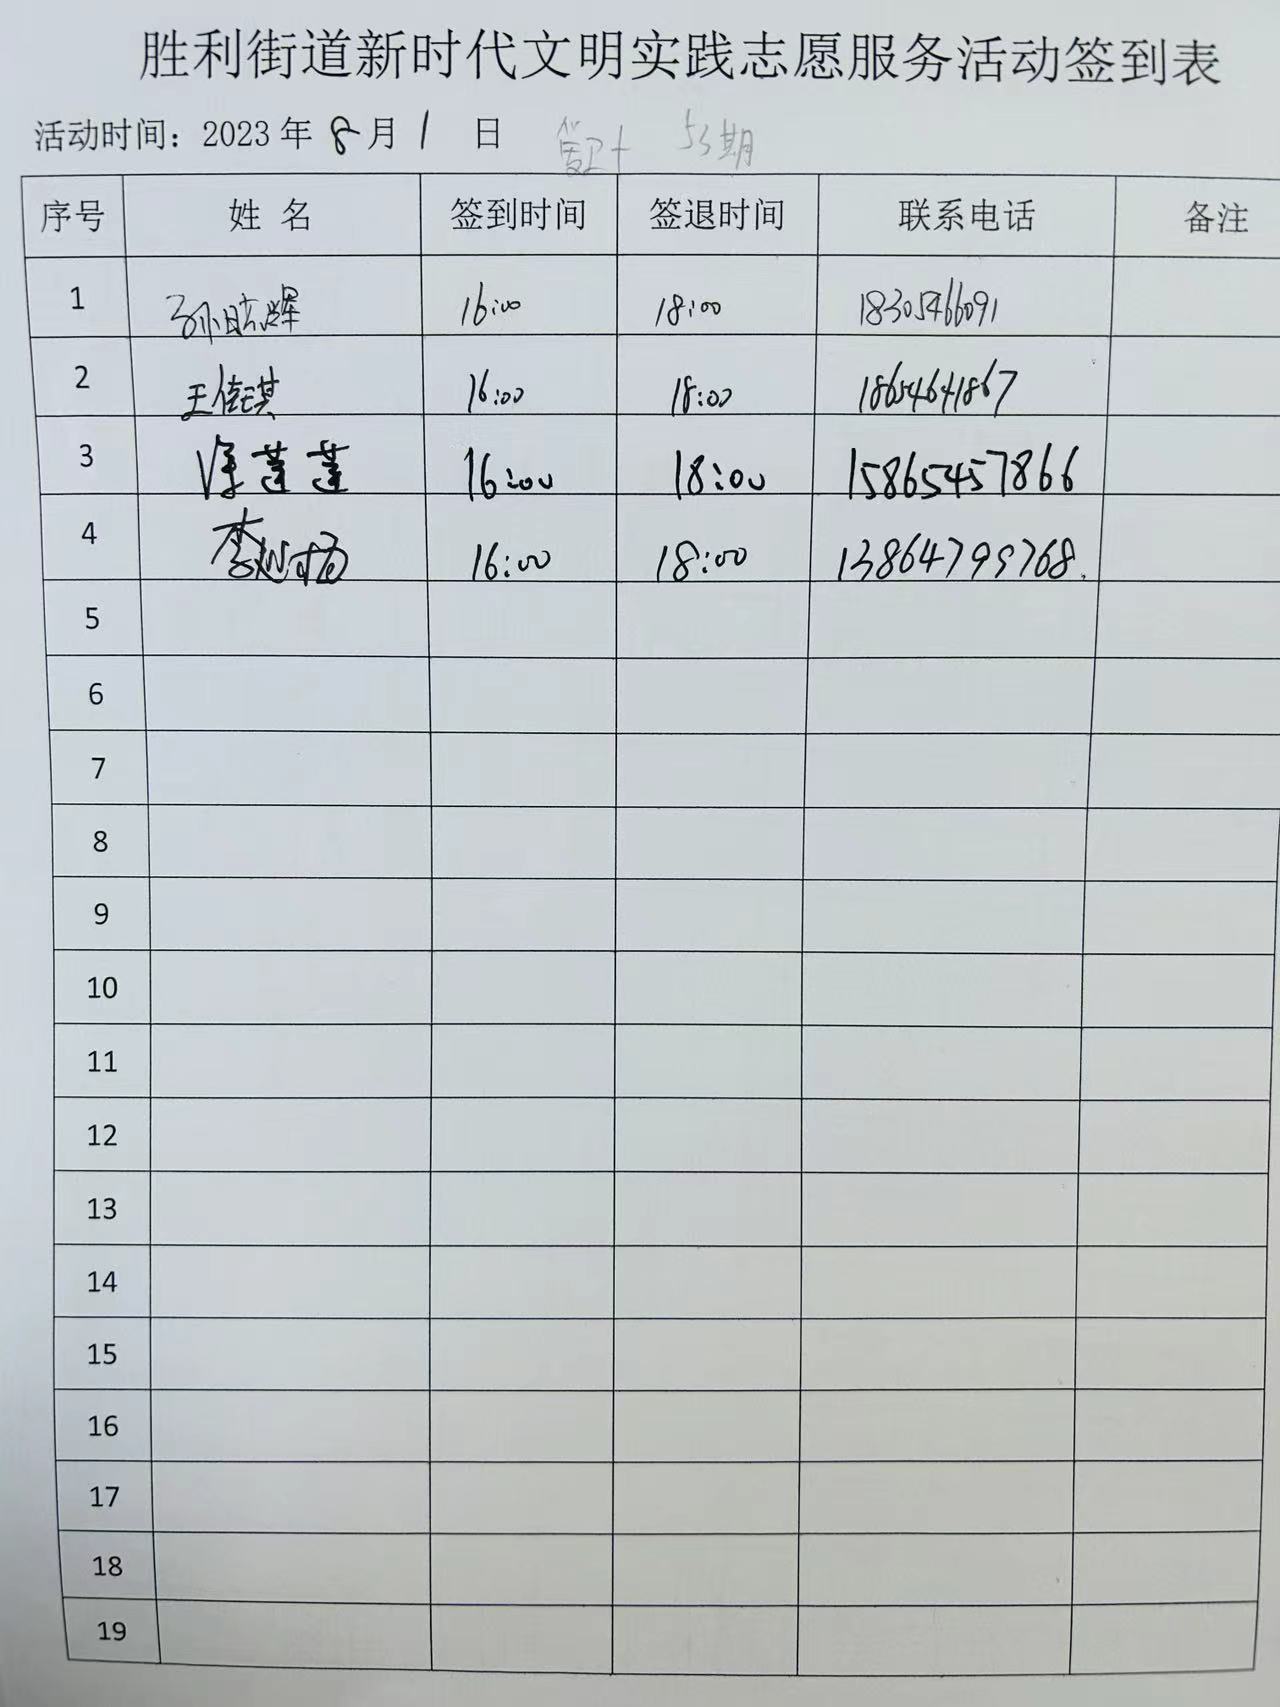 胜利街道新时代文明实践志愿服务活动签到表
活动时间：2023年 8月 1 日 53期
序号 姓 名 签到时间 签退时间 联系电话 备注
1 孙 辉 16:00 18:00 18305466091
2 王佳琪 16:00 18:00 18654641867
3 莲莲 16:00 18:00 15865457866
4 李 杨 16:00 18:00 13864799768.
5
6
7
8
9
10
11
12
13
14
15
16
17
18
19